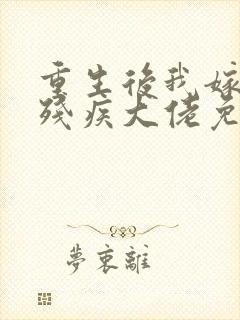 重生後我嫁
殘疾大佬免
夢裏離